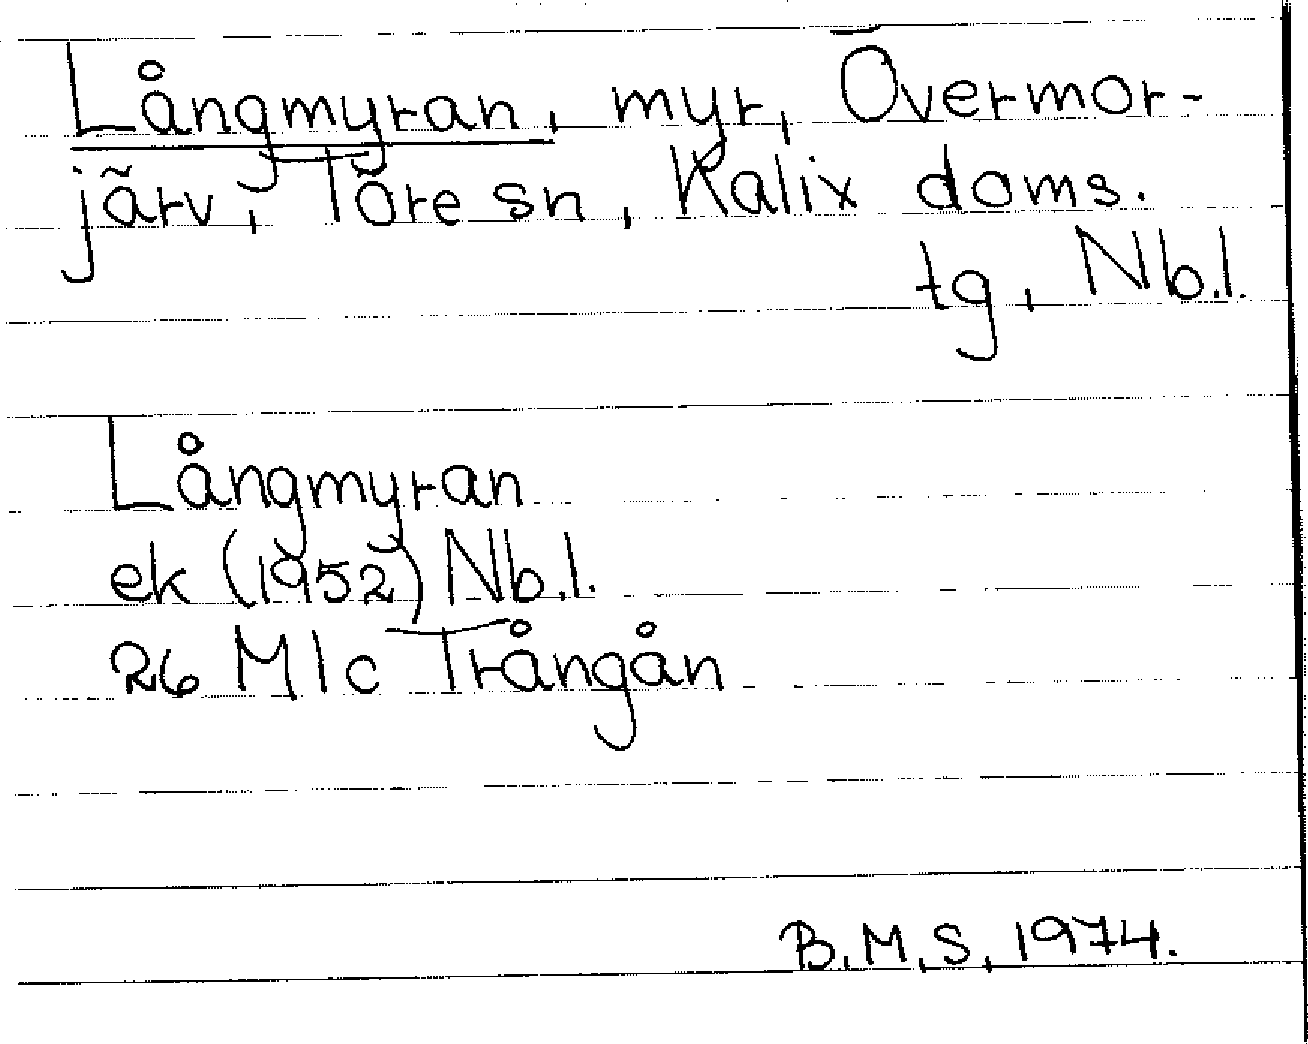 Långmyran, myr, Övermor-
järv, Töre sn, Kalix doms.
tg, Nb.l.
Långmyran
ek (1952) Nb.l.
26 M 1c Trångån
B.M.S, 1974.